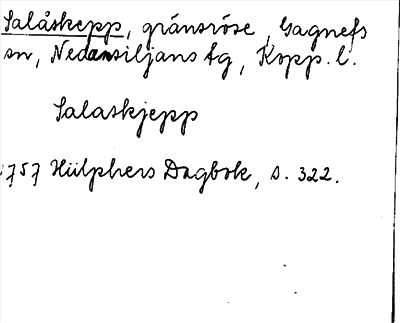 Salåskepp, gränsröse, Gagnefs
sn, Nedansiljans fg, Kopp. l.
Salaskjepp
1757 Hülphers Dagbok, s. 322.